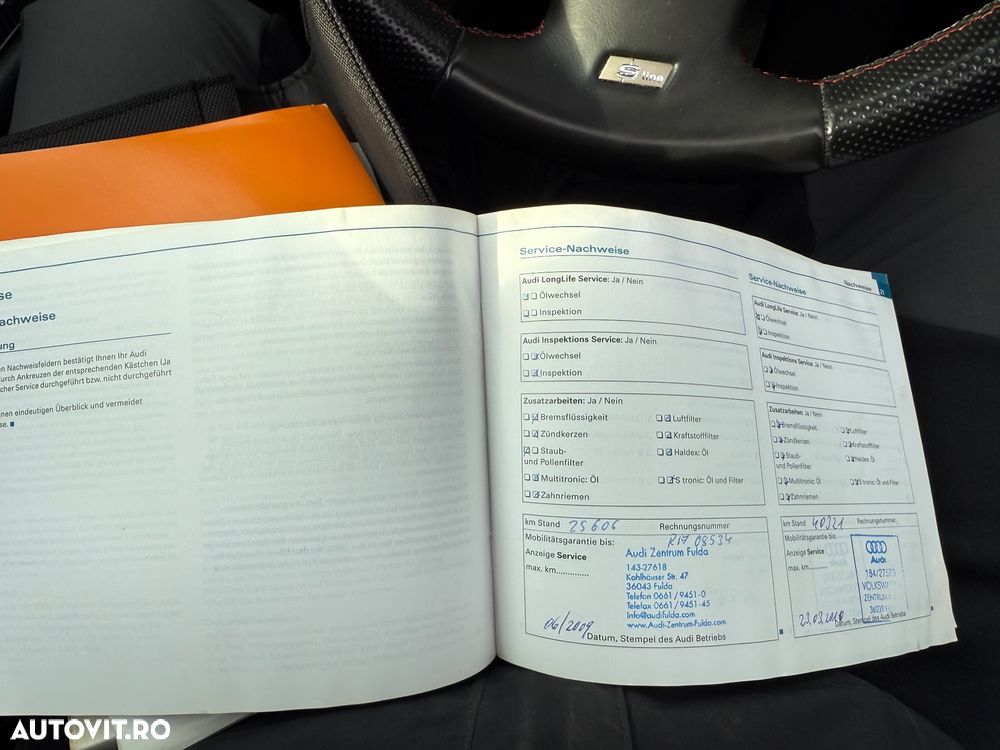 S line
se
achweise
ung
en Nachweisfeldern bestätigt Ihnen Ihr Audi
urch Ankreuzen der entsprechenden Kästchen (Ja
cher Service durchgeführt bzw. nicht durchgeführt
nen eindeutigen Überblick und vermeidet
se.
Service-Nachweise
Audi LongLife Service: Ja / Nein
Ölwechsel
Inspektion
Audi Inspektions Service: Ja / Nein
Ölwechsel
Inspektion
Zusatzarbeiten: Ja / Nein
Bremsflüssigkeit Luftfilter
Zündkerzen Kraftstofffilter
Staub- Haldex: Öl
und Pollenfilter
Multitronic: Öl S tronic: Öl und Filter
Zahnriemen
km Stand 25606 Rechnungsnummer
Mobilitätsgarantie bis: R17 08534
Anzeige Service Audi Zentrum Fulda
max. km.............. 143-27618
Kohlhäuser Str. 47
36043 Fulda
Telefon 0661/9451-0
Telefax 0661/9451-45
Info@audifulda.com
www.Audi-Zentrum-Fulda.com
06/2009
Datum, Stempel des Audi Betriebs
Service-Nachweise Nachweise 21
Audi LongLife Service: Ja / Nein
Ölwechsel
Inspektion
Audi Inspektions Service: Ja / Nein
Ölwechsel
Inspektion
Zusatzarbeiten: Ja / Nein
Bremsflüssigkeit Luftfilter
Zündkerzen Kraftstofffilter
Staub- Haldex: Öl
und Pollenfilter
Multitronic: Öl S tronic: Öl und Filter
Zahnriemen
km Stand 40321 Rechnungsnummer
Mobilitätsgarantie bis:
Anzeige Service
max. km.........
Audi
184/27673
VOLKSW
ZENTRUM
Datum, Stempel des Audi Betriebs
AUTOVIT.RO